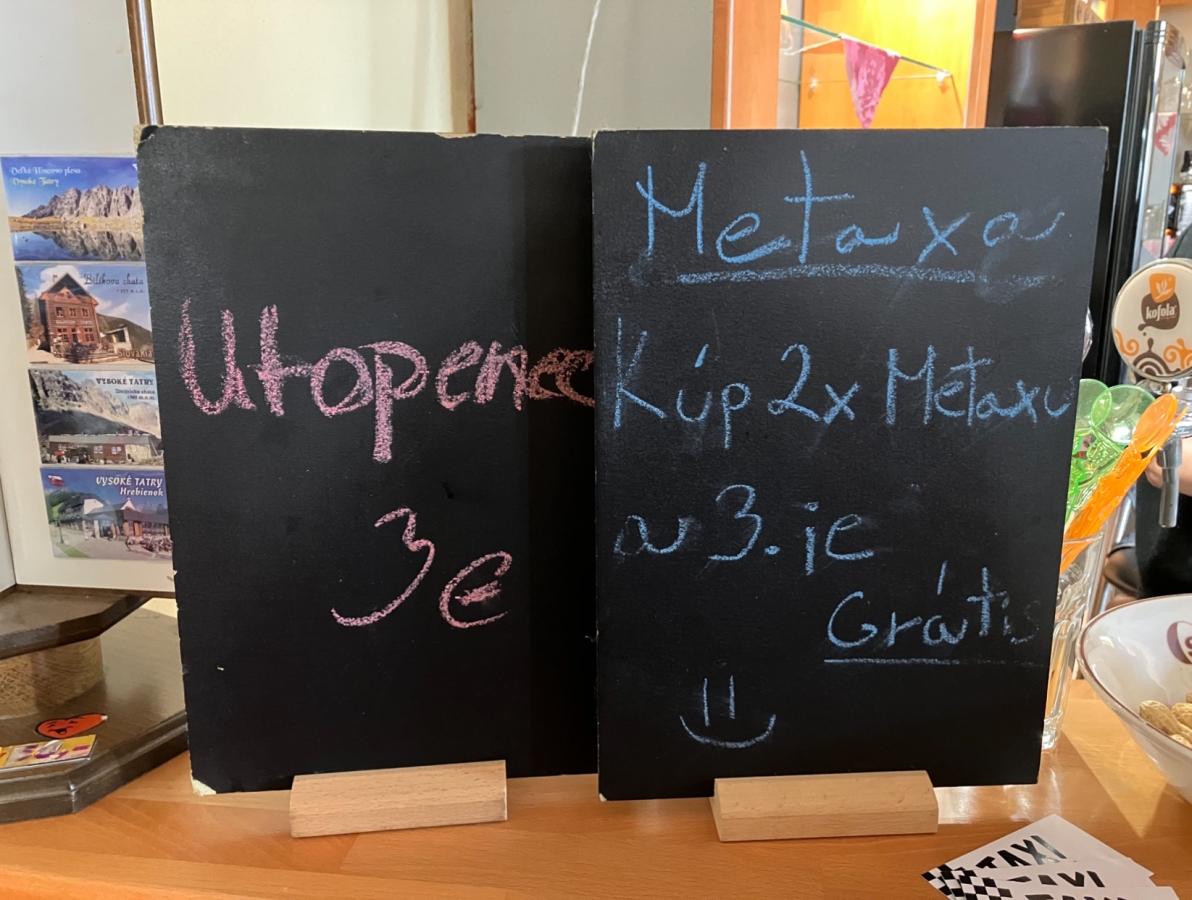 Utopenec
3 €
Metaxa
Kúp 2x Metaxu
a 3. je
Grátis
Veľké Hincovo pleso
Vysoké Tatry
Bilíkova chata
SLOVAKIA
VYSOKÉ TATRY
VYSOKÉ TATRY
Hrebienok
kofola
TAXI
TAXI